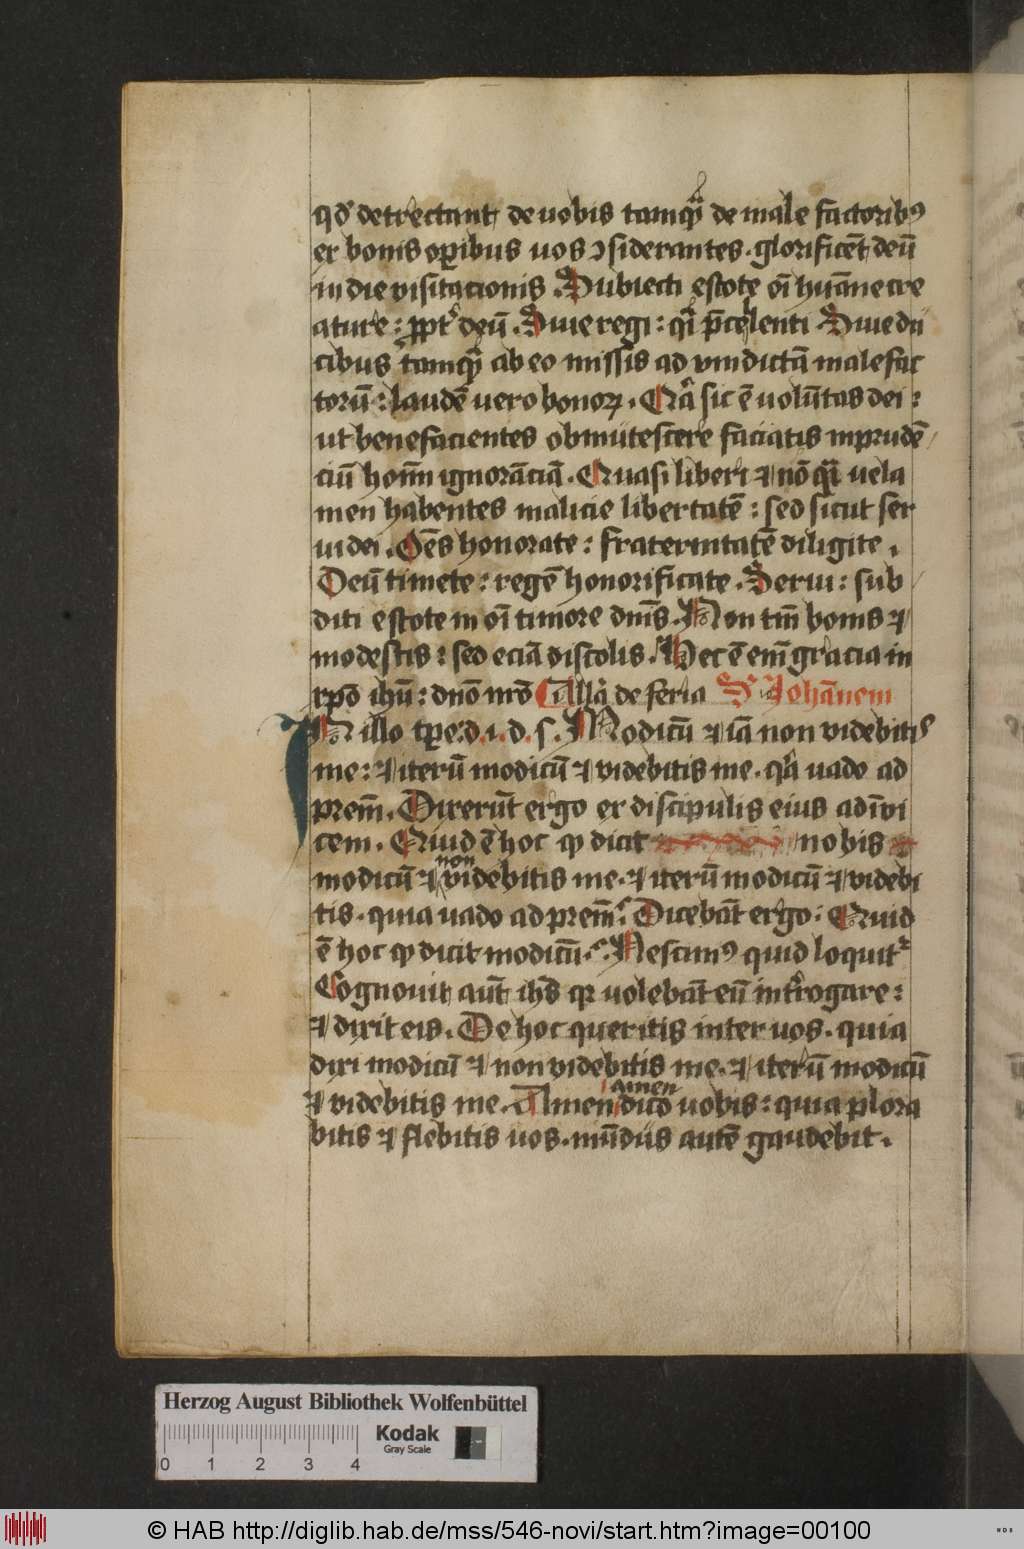 qd' detrectant de uobis tamqᷓ de male factoribꝰ
ex bonis oꝑibus uos ↄsiderantes . glorificēt deū
in die visitacionis . Subiecti estote oī huāne cre
ature : ꝓpt' deū . Siue regi : qͣi p̄cellenti Siue du
cibus tamqᷓ ab eo missis ad vindictā malefac
torū : laudē uero bonoꝝ . Qꝛ sic ē uolūtas dei :
ut benefacientes obmutescere faciatis inprudē/
ciū hoīm ignorāciā . Quasi liberi ⁊ nō qͣi uela
men habentes malicie libertatē : sed sicut ser
ui dei . Oēs honorate : fraternitatē diligite .
Deū timete : regē honorificate . Serui : sub/
diti estote in oī timore dn̄is . Non tm̄ bonis ⁊
modestis : sed eciā discolis . Hec ē em̄ gracia in
xpō ihū : dnō nrō Allā de feria S' Johānem
IN illo tꝑe . d . i . d . s . Modicū ⁊ iā non videbitis
me : ⁊ iterū modicū ⁊ videbitis me . qͣ uado ad
prem̄ . Dixerūt ergo ex discipulis eius adīvi
cem . Quid ē hoc qꝫ dicit nobis
modicū ⁊ non videbitis me . ⁊ iterū modicū ⁊ videbi
tis . quia uado ad prem̄ . Dicebāt ergo : Quid
ē hoc qꝫ dicit modicū . Nescimꝰ quid loquit'
Cognouit aūt ih̄s qꝛ uolebāt eū int'rogare :
⁊ dixit eis . De hoc queritis inter uos . quia
dixi modicū ⁊ non videbitis me . ⁊ iterū modicū
⁊ videbitis me . Amen amen dico uobis : quia plora
bitis ⁊ flebitis uos . mūdus autē gaudebit .
Herzog August Bibliothek Wolfenbüttel
Kodak
Gray Scale
0 1 2 3 4
© HAB http://diglib.hab.de/mss/546-novi/start.htm?image=00100